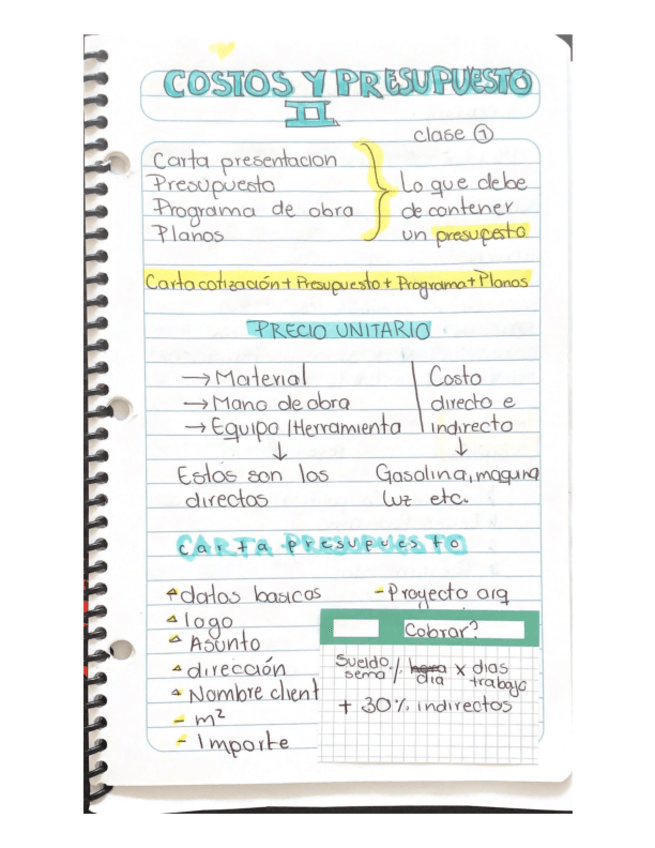 COSTOS Y PRESUPUESTO
II
clase ①
Carta presentacion
Presupuesto
Programa de obra
Planos
Lo que debe
de contener
un presupesto
Carta cotización + Presupuesto + Programa + Planos
PRECIO UNITARIO
→ Material
→ Mano de obra
→ Equipo / Herramienta
↓
Estos son los
directos
Costo
directo e
indirecto
↓
Gasolina, maquina
luz etc.
CARTA PRESUPUESTO
carta presupuesto
datos basicos
logo
Asunto
dirección
Nombre client
- m²
- Importe
- Proyecto arq
Cobrar?
Sueldo sema / hora dia x dias trabajo
+ 30% indirectos